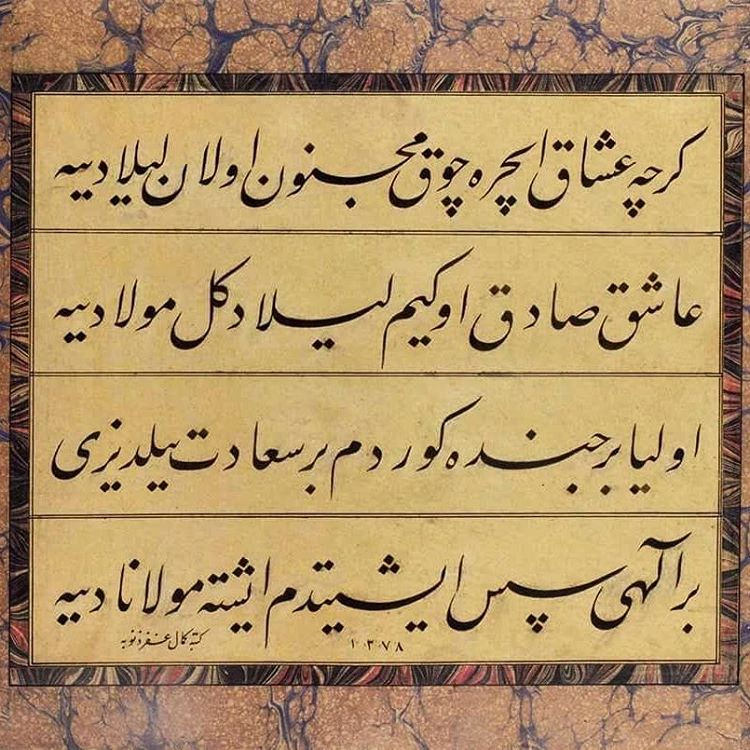 كرچه عشاق ایچره چوق مجنون اولان لیلا دییه
عاشق صادق او كیم لیلا دكل مولا دییه
اولیا برجنده كوردم بر سعادت ییلدیزی
بر آلهی سس ایشیتدم ایشته مولانا دییه
كتبه كمال غفر ذنوبه
١٣٧٨